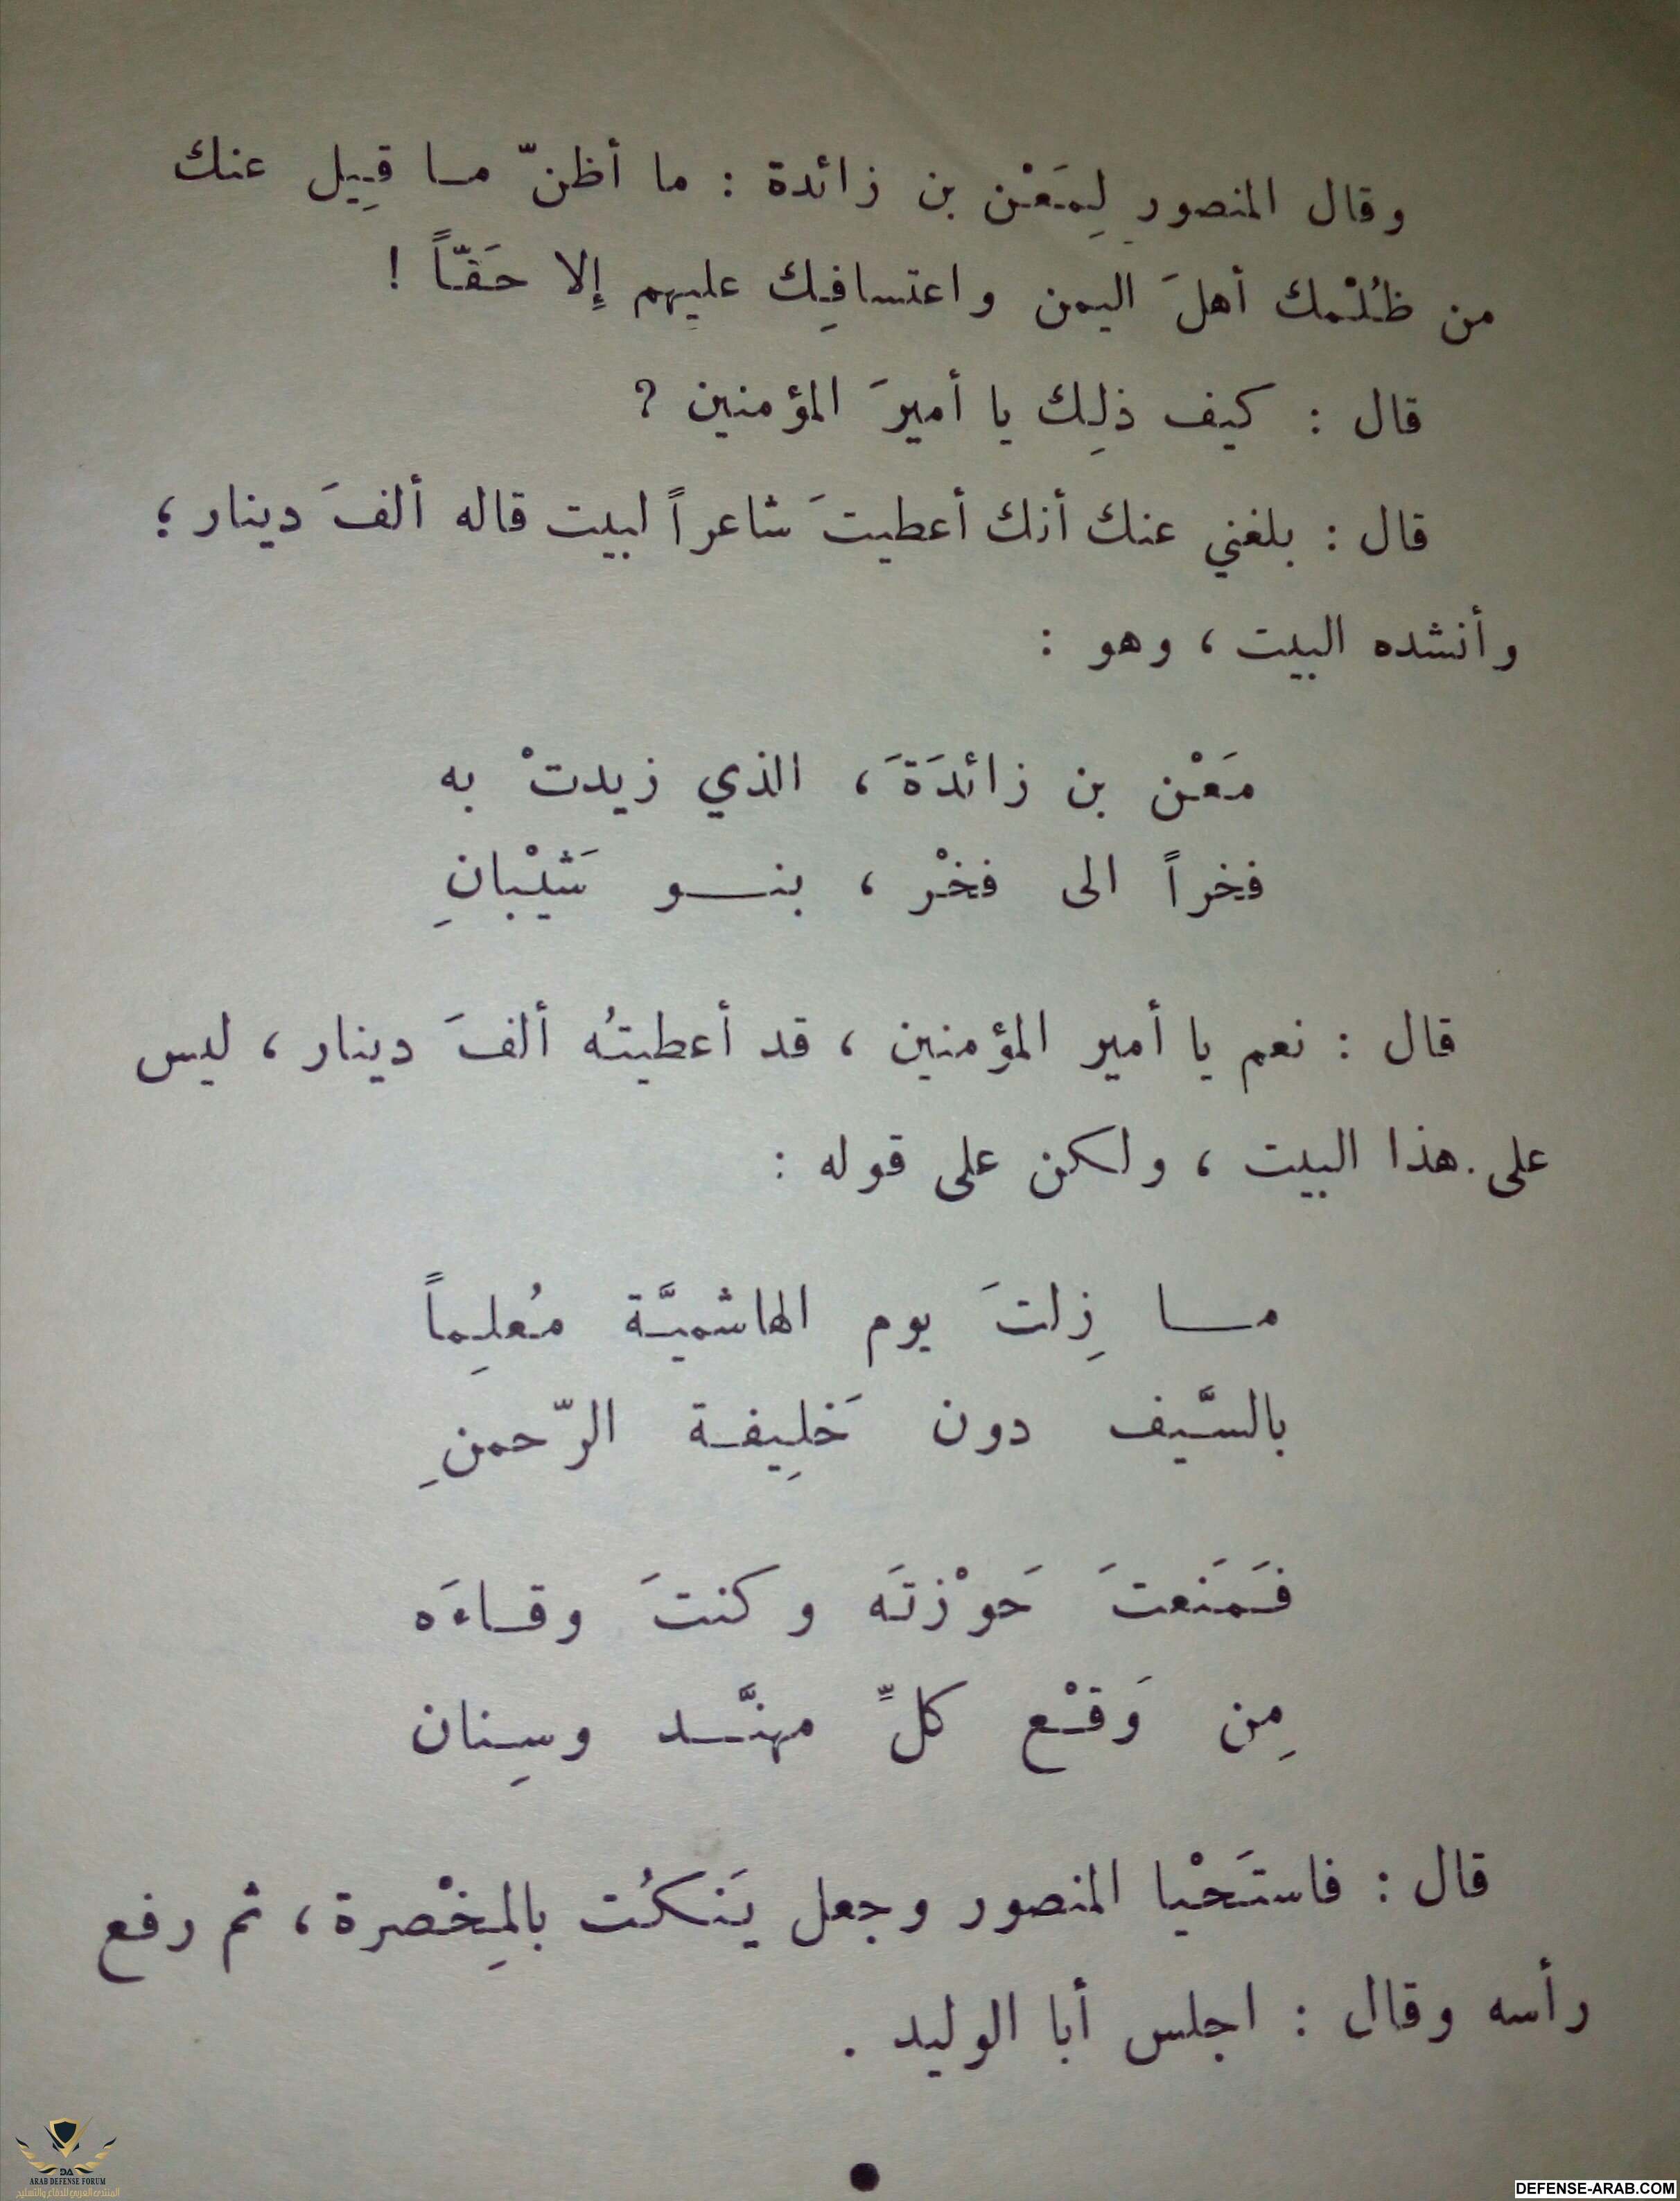 وقال المنصور لِمَعْن بن زائدة : ما أظنّ مـا قِيل عنك
من ظُلْمك أهلَ اليمن واعتسافِك عليهم إِلا حَقّاً !
قال : كيف ذلِك يا أميرَ المؤمنين ؟
قال : بلغني عنك أنك أعطيتَ شاعراً لبيت قاله ألفَ دينار ؛
وأنشده البيت ، وهو :
مَعْن بن زائدَةَ ، الذي زيدتْ به
فخراً الى فخْر ، بنـــو شَيْبانِ
قال : نعم يا أمير المؤمنين ، قد أعطيتُه ألفَ دينار ، ليس
على هذا البيت ، ولكن على قوله :
مـــا زِلتَ يوم الهاشميَّة مُعلِماً
بالسَّيف دون خَلِيفـة الرّحمنِ
فَمَنَعتَ حَوْزتَه وكنتَ وقـاءَه
مِن وَقْع كلِّ مهنَّــد وسِنان
قال : فاستَحْيا المنصور وجعل يَنكُت بالمِخْصرة ، ثم رفع
رأسه وقال : اجلس أبا الوليد .
DA
ARAB DEFENSE FORUM
المنتدى العربي للدفاع والتسليح
DEFENSE-ARAB.COM